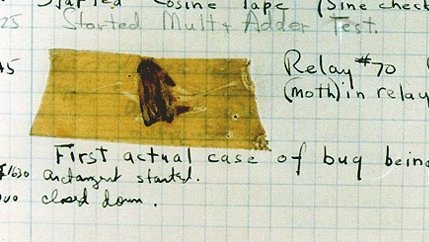 Started Cosine Tape (Sine check
Started Mult + Adder Test.
Relay #70
(moth) in relay
First actual case of bug being
arctangent started.
closed down.